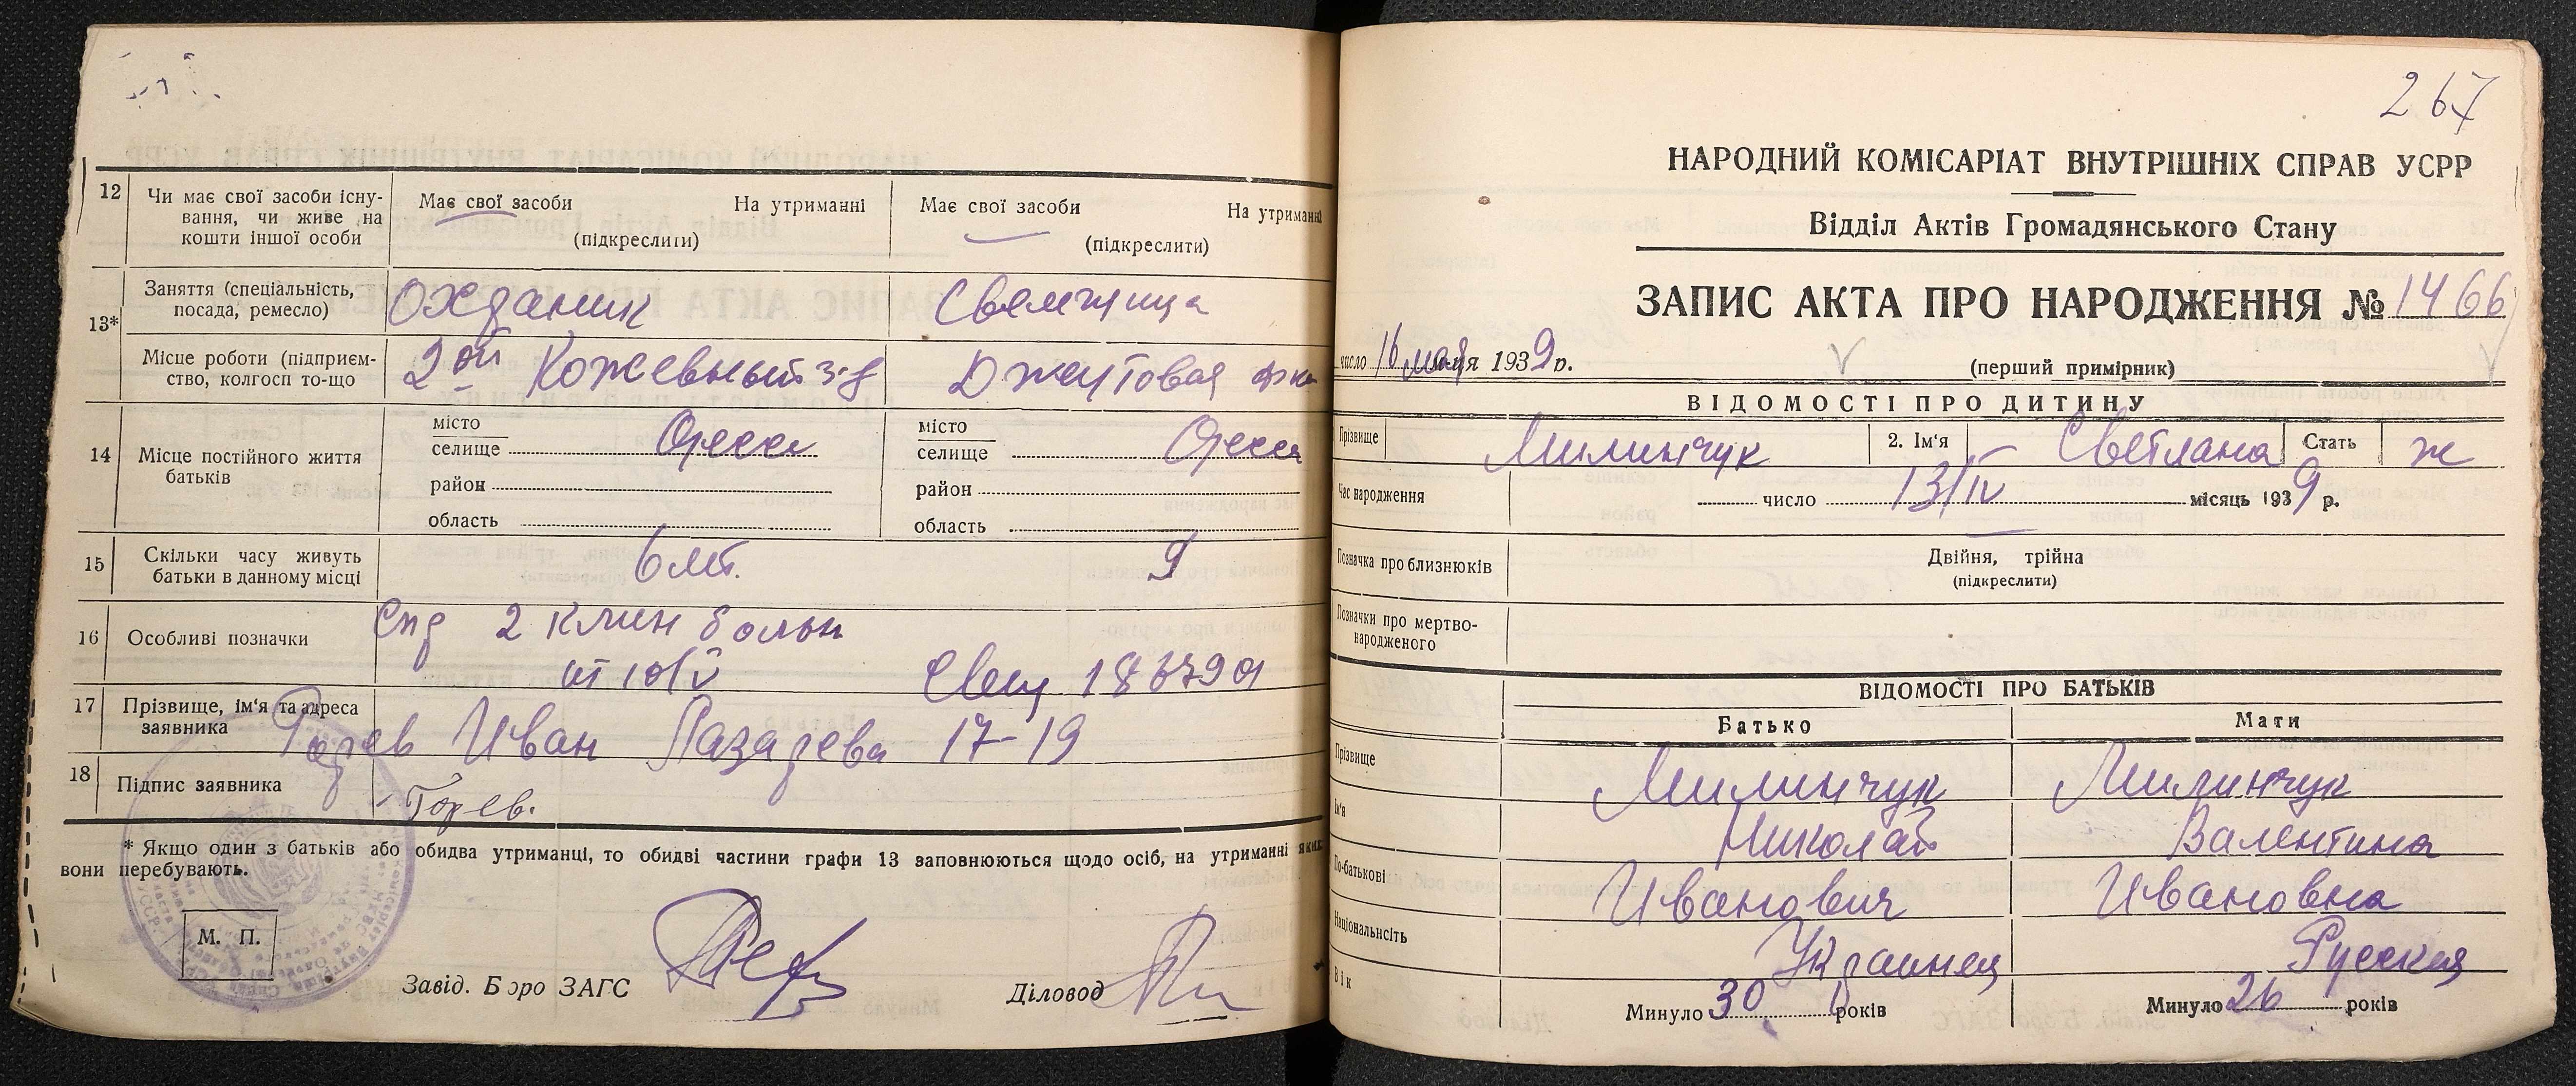 12
Чи має свої засоби існу-
вання, чи живе на
кошти іншої особи
Має свої засоби На утриманні
(підкреслити)
Має свої засоби На утриманні
(підкреслити)
13*
Заняття (спеціальність,
посада, ремесло)
Охраник
Місце роботи (підприєм-
ство, колгосп то-що
2ой Кожевный з-д
Джутовая
14
Місце постійного життя
батьків
місто
селище Одесса
район
область
місто
селище Одесса
район
область
15
Скільки часу живуть
батьки в данному місці
9
16
Особливі позначки
2 клин больн
от 10/V
17
Прізвище, ім'я та адреса
заявника
Горев Иван Лазарева 17-19
18
Підпис заявника
Горев.
* Якщо один з батьків або обидва утриманці, то обидві частини графи 13 заповнюються щодо осіб, на утриманні яких
вони перебувають.
М. П.
Завід. Бюро ЗАГС
Діловод
267
НАРОДНИЙ КОМІСАРІАТ ВНУТРІШНІХ СПРАВ УСРР
Відділ Актів Громадянського Стану
ЗАПИС АКТА ПРО НАРОДЖЕННЯ № 1466
число 16 мая 1939 р.
(перший примірник)
ВІДОМОСТІ ПРО ДИТИНУ
Прізвище Милинчук 2. Ім'я Светлана Стать ж
Час народження число 13/IV місяць 1939 р.
Позначка про близнюків
Двійня, трійна
(підкреслити)
Позначки про мертво-
народженого
ВІДОМОСТІ ПРО БАТЬКІВ
Батько Мати
Прізвище Милинчук Милинчук
Ім'я Николай Валентина
По-батькові Иванович Ивановна
Національність Украинец Русская
Вік
Минуло 30 років
Минуло 26 років